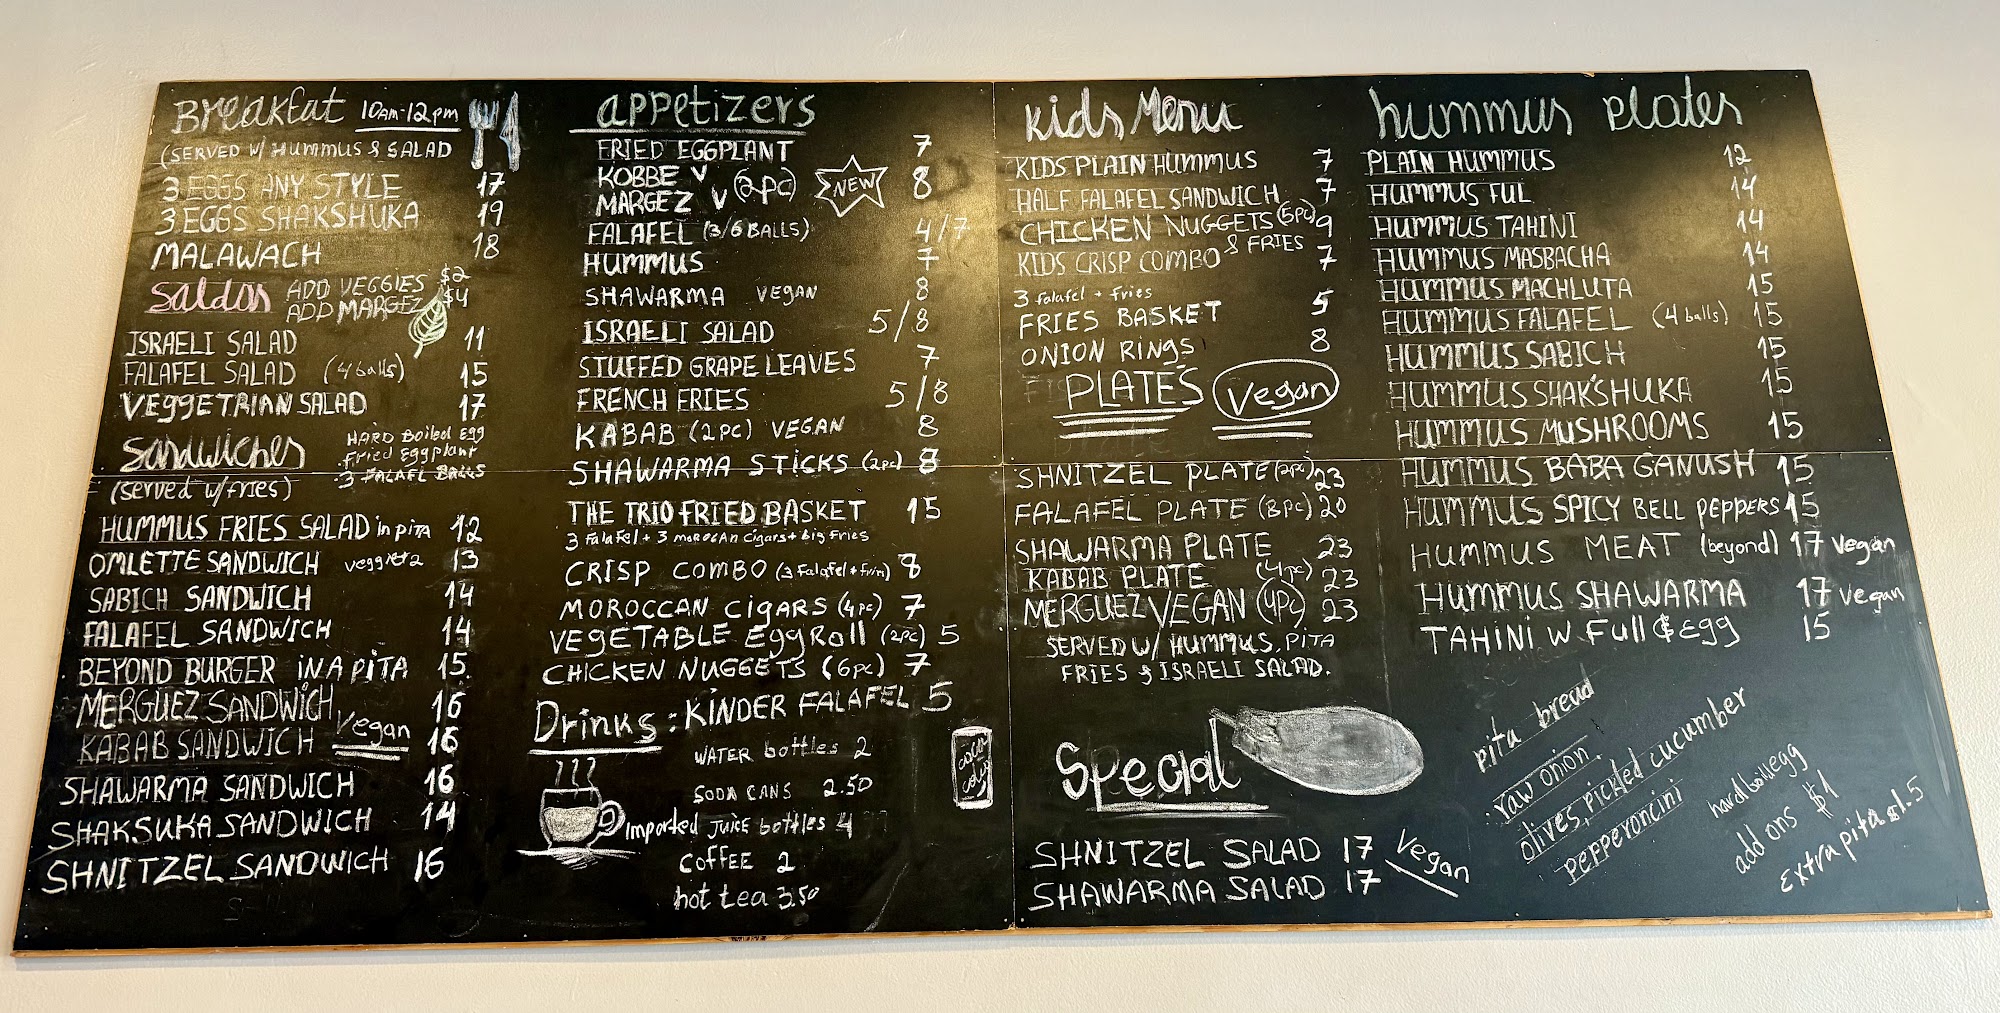 BREAKFAT 10AM-12PM
(SERVED W/ HUMMUS & SALAD
3 EGGS ANY STYLE 17
3 EGGS SHAKSHUKA 19
MALAWACH 18
ADD VEGGIES $2
ADD MARGEZ $4
Saldas
ISRAELI SALAD 11
FALAFEL SALAD (4 balls) 15
VEGGETRIAN SALAD 17
HARD Boiled Egg
Fried Eggplant
3 FALAFL BALLS
Sandwiches
(served w/fries)
HUMMUS FRIES SALAD in pita 12
OMLETTE SANDWICH 13
SABICH SANDWICH 14
FALAFEL SANDWICH 14
BEYOND BURGER IN A PITA 15
MERGUEZ SANDWICH 16
KABAB SANDWICH vegan 16
SHAWARMA SANDWICH 16
SHAKSUKA SANDWICH 14
SHNITZEL SANDWICH 16
appetizers
FRIED EGGPLANT 7
KOBBE V
MARGEZ V (2PC) NEW 8
FALAFEL (3/6 BALLS) 4/7
HUMMUS 7
SHAWARMA VEGAN 8
ISRAELI SALAD 5/8
STUFFED GRAPE LEAVES 7
FRENCH FRIES 5/8
KABAB (2PC) VEGAN 8
SHAWARMA STICKS (2PC) 8
THE TRIO FRIED BASKET 15
3 Falafel + 3 moroccan cigars + big fries
CRISP COMBO (3 Falafel + fries) 8
MOROCCAN CIGARS (4PC) 7
VEGETABLE EggRoll (2PC) 5
CHICKEN NUGGETS (6PC) 7
KINDER FALAFEL 5
Drinks:
WATER bottles 2
SODA CANS 2.50
Imported Juice bottles 4
COFFEE 2
hot tea 3.50
coca cola
Kids Menu
KIDS PLAIN HUMMUS 7
HALF FALAFEL SANDWICH 7
CHICKEN NUGGETS (5PC) 9
& FRIES
KIDS CRISP COMBO 7
3 falafel + fries
FRIES BASKET 5
ONION RINGS 8
PLATES Vegan
SHNITZEL PLATE (2PC) 23
FALAFEL PLATE (8PC) 20
SHAWARMA PLATE 23
KABAB PLATE (4PC) 23
MERGUEZ VEGAN (4PC) 23
SERVED W/ HUMMUS, PITA
FRIES & ISRAELI SALAD.
Special
SHNITZEL SALAD 17 Vegan
SHAWARMA SALAD 17
hummus Plates
PLAIN HUMMUS 12
HUMMUS FUL 14
HUMMUS TAHINI 14
HUMMUS MASBACHA 14
HUMMUS MACHLUTA 15
HUMMUS FALAFEL (4 balls) 15
HUMMUS SABICH 15
HUMMUS SHAK'SHUKA 15
HUMMUS MUSHROOMS 15
HUMMUS BABA GANUSH 15
HUMMUS SPICY BELL PEPPERS 15
HUMMUS MEAT (beyond) 17 vegan
HUMMUS SHAWARMA 17 vegan
TAHINI W Full & Egg 15
pita bread
raw onion.
olives, pickled cucumber
pepperoncini
hard boill egg
add ons $1
Extra pita $1.5